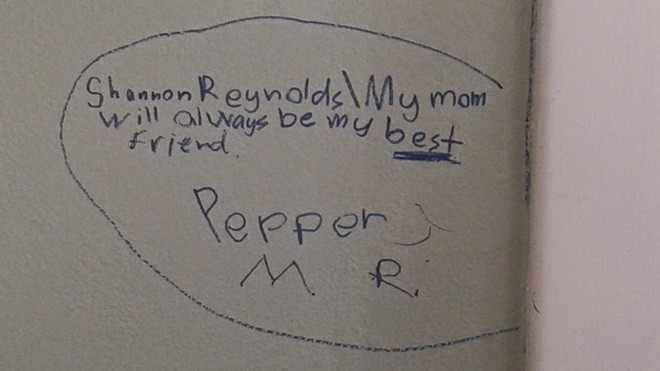 Shannon Reynolds\My mom
will always be my best
friend.
Pepper
M. R.